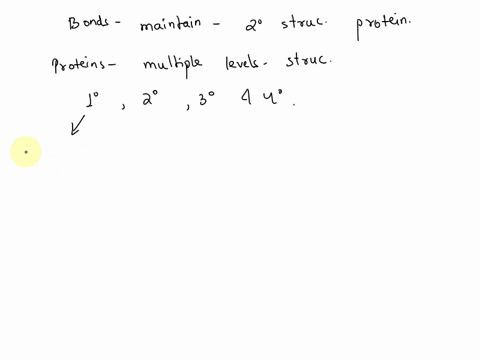 Bonds - maintain - 2° struc. protein.
Proteins - multiple levels - struc.
1° , 2° , 3° & 4° .